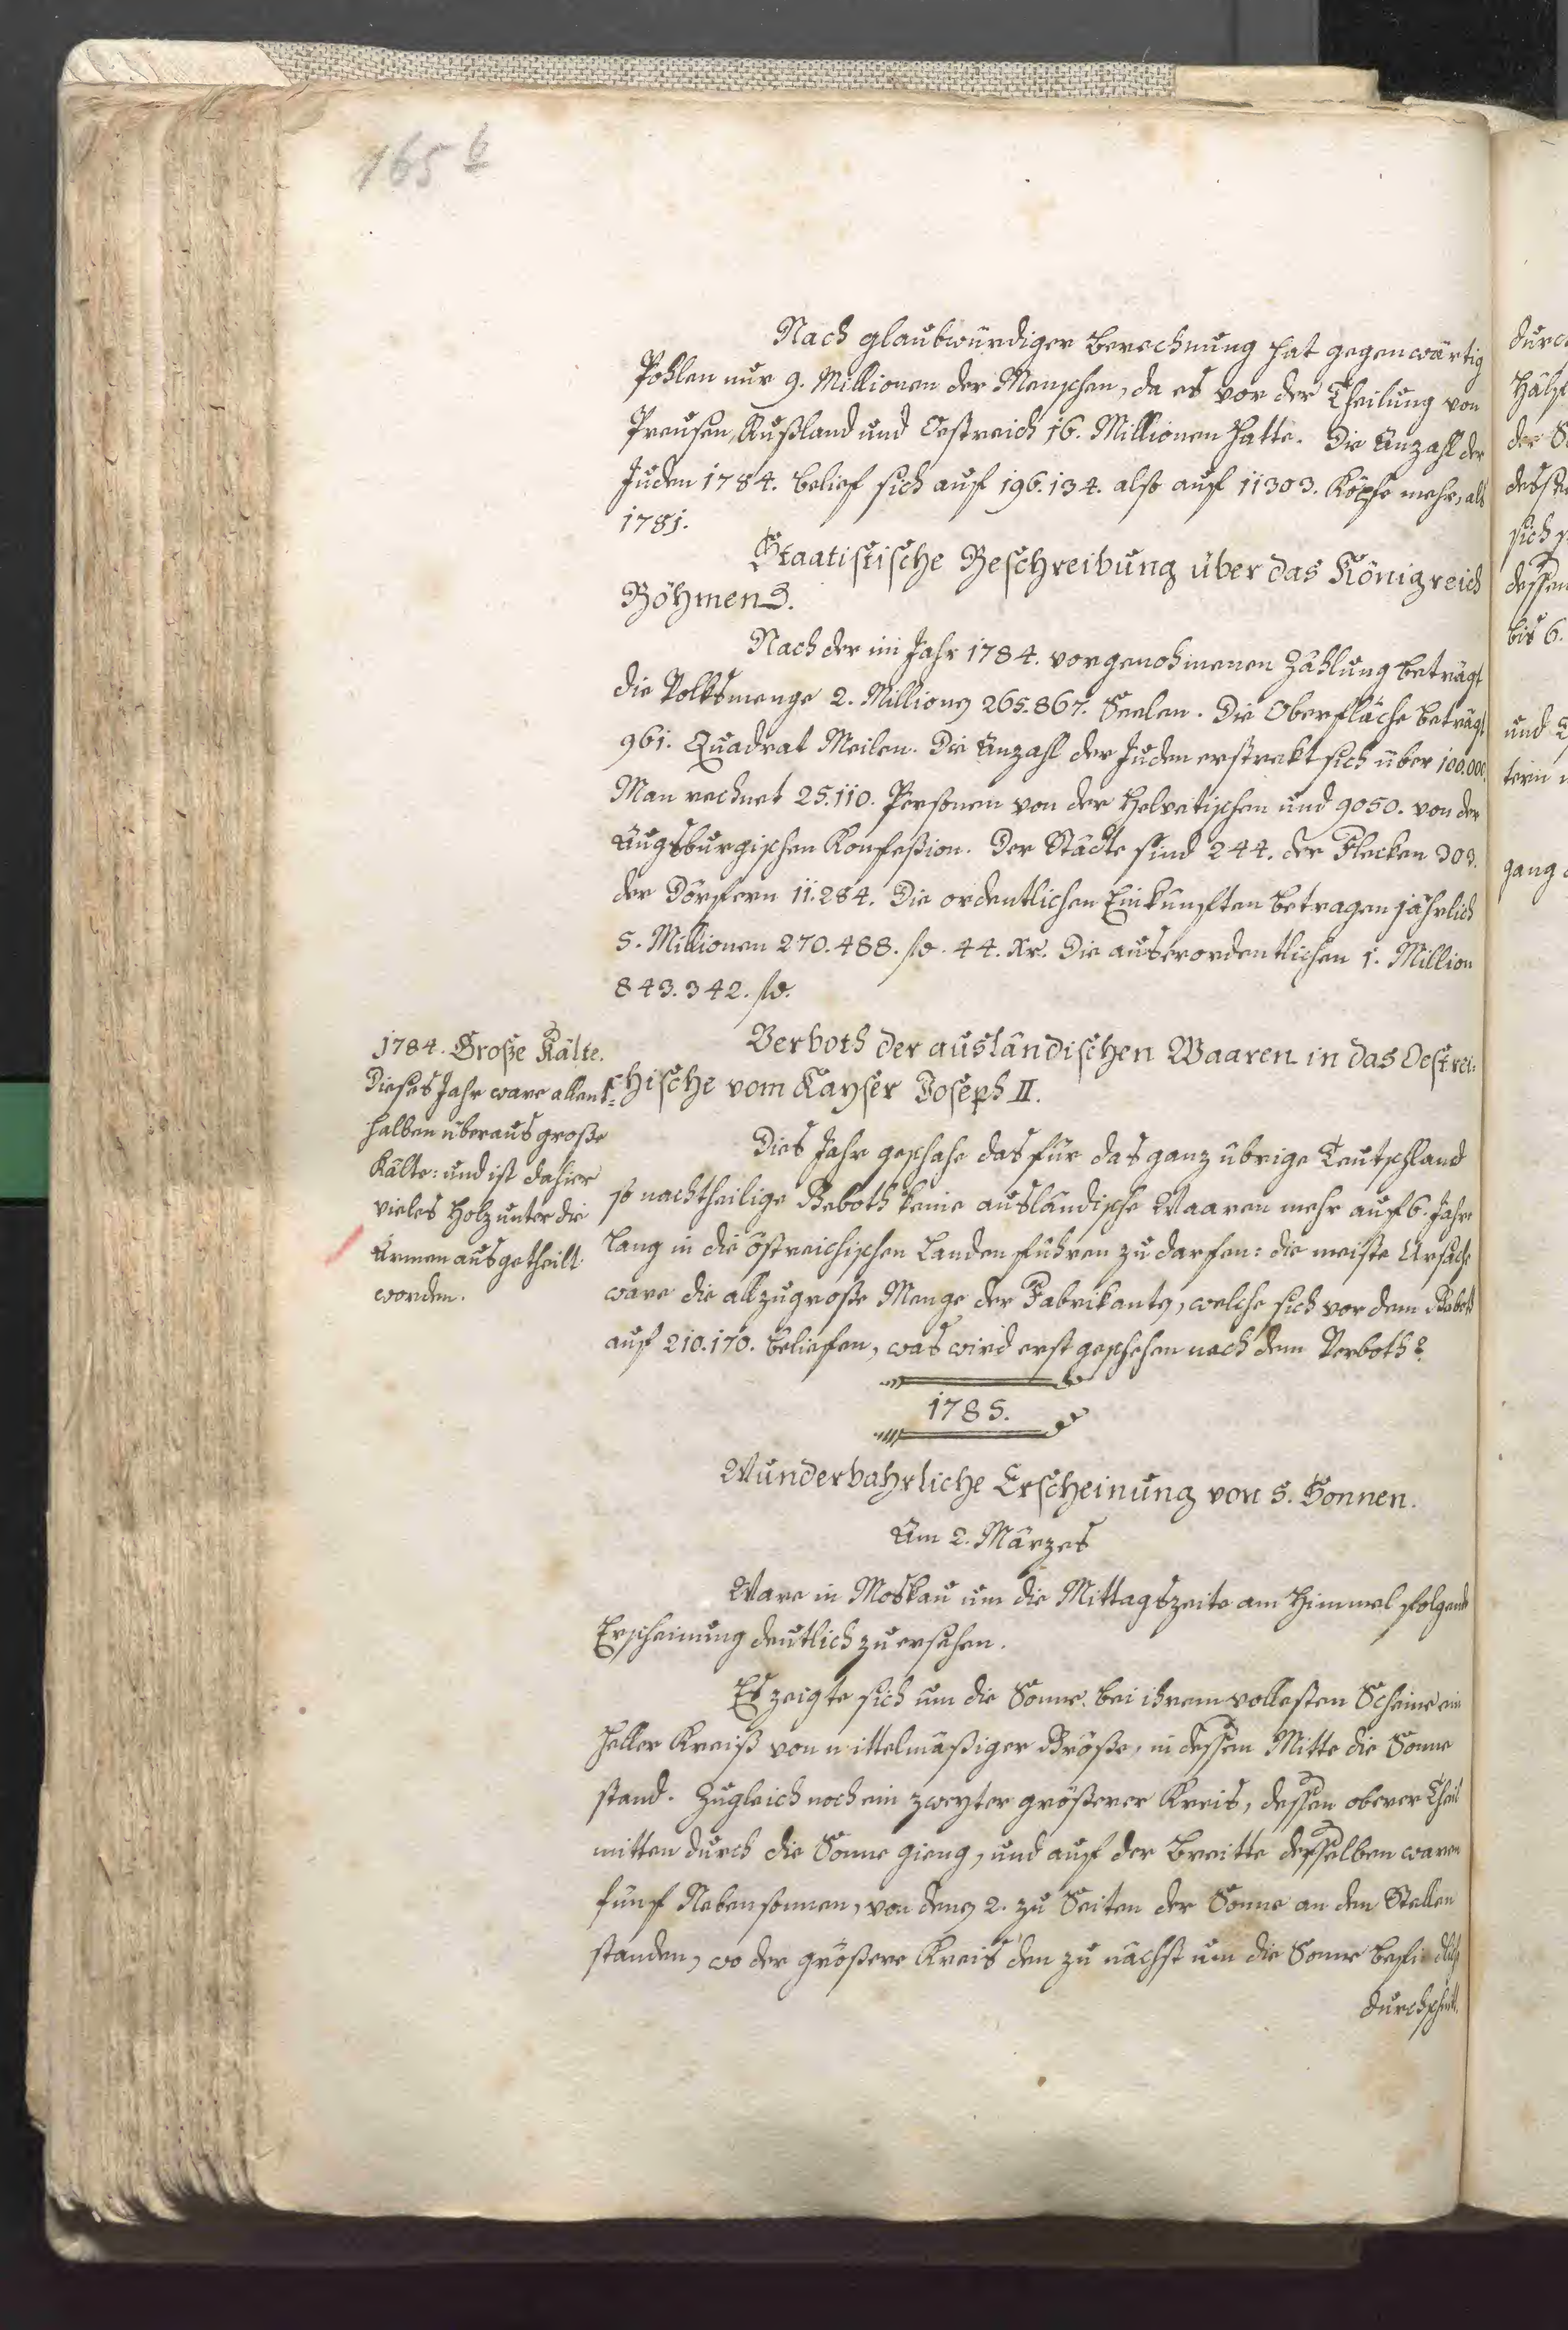 165 b
Nach glaubwürdiger Berechnung hat gegenwärtig
Pohlen nur 9. Millionen der Menschen, da es vor der Theilung von
Preusen, Rußland und Oestreich 16. Millionen hatte. Die Anzahl der
Juden 1784. belief sich auf 196.134. also auf 11303. Köpfe mehr, als
1781.
Staatistische Beschreibung über das Königreich
Böhmens.
Nach der im Jahr 1784. vorgenohmenen Zählung beträgt
die Volksmenge 2. Millionen 265.867. Seelen. Die Oberfläche beträgt
961. Quadrat Meilen. Die Anzahl der Juden erstrekt sich über 100.000.
Man rechnet 25.110. Personen von der Helvetischen und 9050. von der
Augsburgischen Konfeßion. Der Städte sind 244. der Flecken 303.
der Dörfern 11.284. Die ordentlichen Einkünften betragen jährlich
5. Millionen 270.488. fl. 44. Xr. Die auserordentlichen 1. Million
843.342. fl.
1784. Große Kälte.
Dieses Jahr ware allent-
halben überaus große
Kälte: und ist dahier
vieles Holz unter die
Armen ausgetheilt
worden.
Verboth der ausländischen Waaren in das Oestrei-
chische vom Kayser Joseph II.
Dies Jahr geschahe das für das ganz übrige Teutschland
so nachtheilige Beboth keine ausländische Waaren mehr auf 6. Jahre
lang in die östreichischen Landen führen zu darfen: die meiste Ursache
ware die allzugroße Menge der Fabrikanten, welche sich vor dem Beboth
auf 210.170. beliefen, was wird erst geschehen nach dem Verboth?
1785.
Wunderbahrliche Erscheinung von 5. Sonnen.
Am 2. Märzes
Ware in Moskau um die Mittagszeite am Himmel folgende
Erscheinung deutlich zu ersehen.
Es zeigte sich um die Sonne bei ihrem vollesten Scheine ein
heller Kreiß von mittelmäßiger Größe, in dessen Mitte die Sonne
stand. Zugleich noch ein zweyter größerer Kreis, dessen oberer Theil
mitten durch die Sonne gieng, und auf der Breitte desselben waren
fünf Nebensonnen, von denen 2. zu Seiten der Sonne an den Stellen
standen, wo der größere Kreis den zu nächst um die Sonne